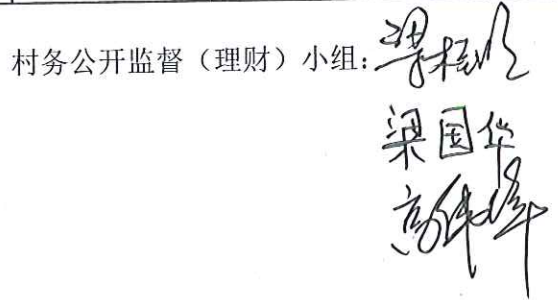 村务公开监督（理财）小组：梁
梁国华
高伟峰